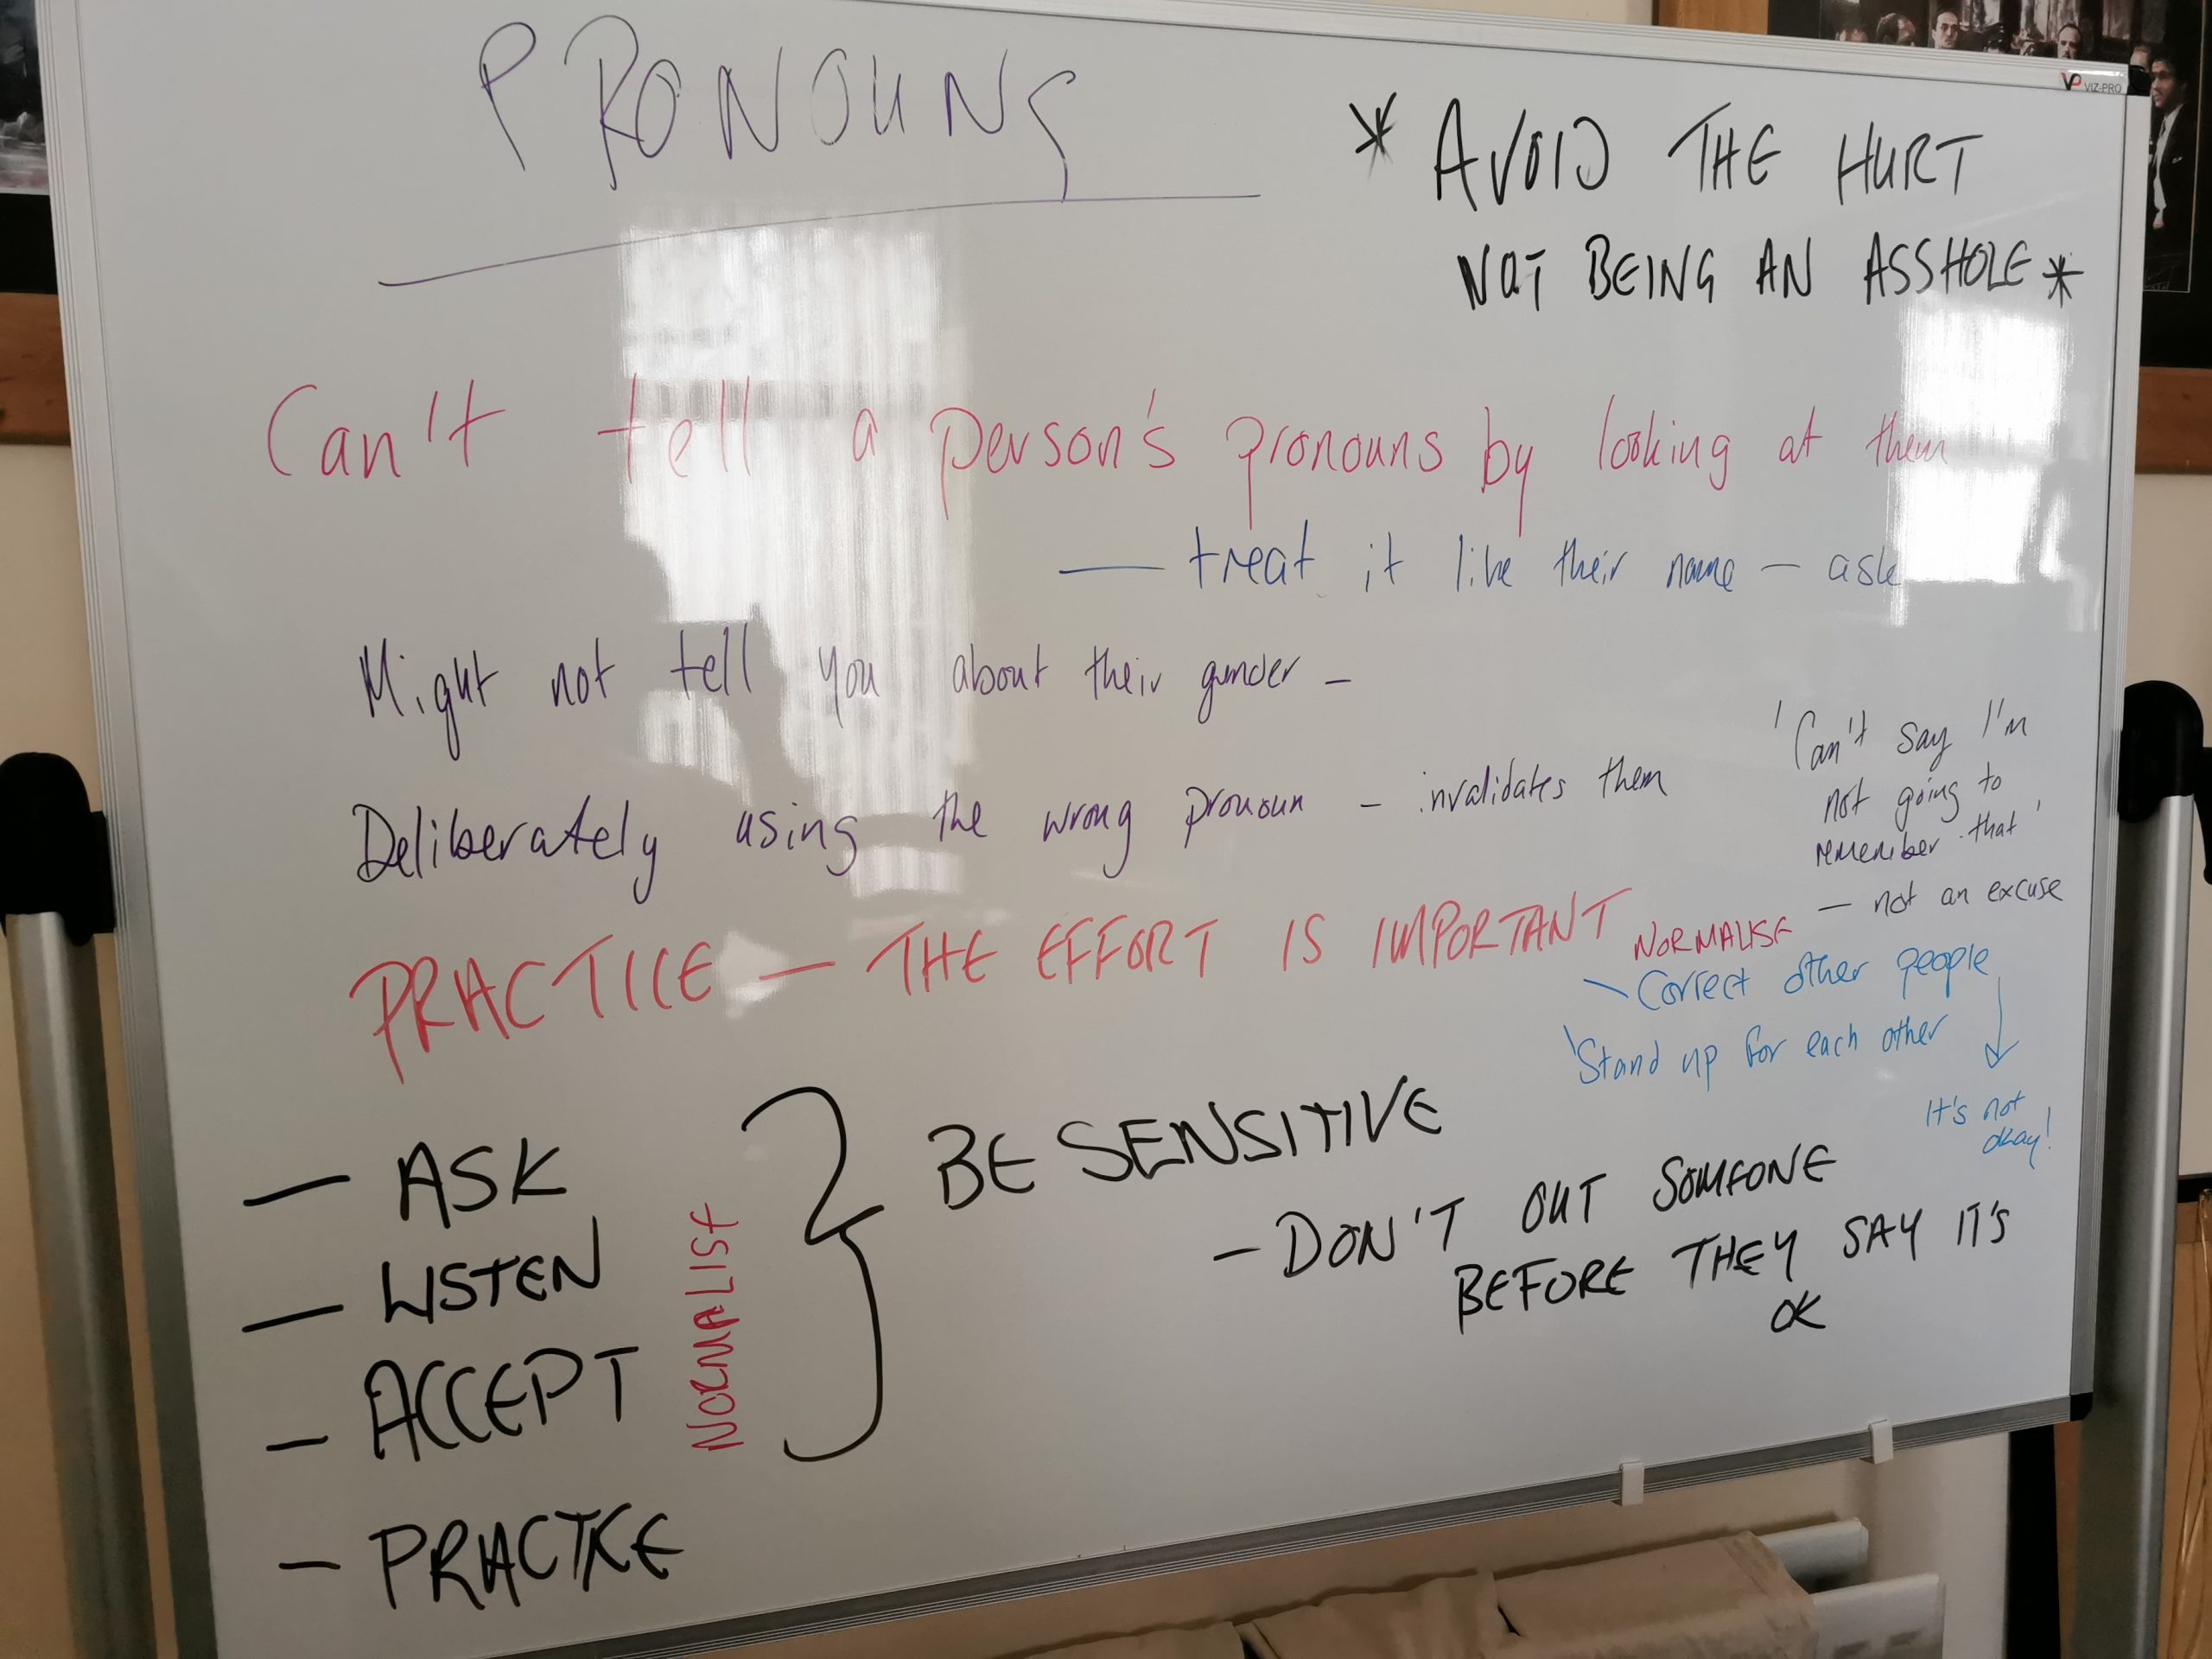 PRONOUNS
VIZ-PRO
* AVOID THE HURT
NOT BEING AN ASSHOLE *
Can't tell a person's pronouns by looking at them
— treat it like their name — ask
Might not tell you about their gender –
Deliberately using the wrong pronoun – invalidates them
'Can't say I'm
not going to
remember that'
— not an excuse
PRACTICE — THE EFFORT IS IMPORTANT
NORMALISE
- Correct other people
- Stand up for each other
It's not
okay!
— ASK
— LISTEN
— ACCEPT
— PRACTICE
NORMALISE
BE SENSITIVE
— DON'T OUT SOMEONE
BEFORE THEY SAY IT'S
OK